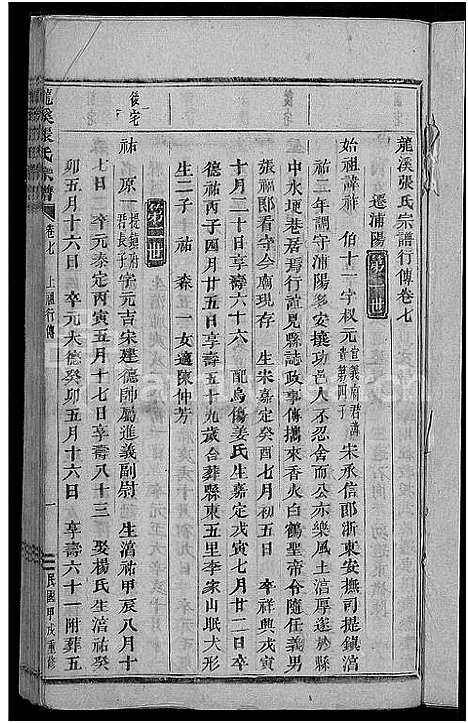 龍溪張氏宗譜行傳卷七
遷浦陽第一世
始祖諱祚 伯十一字權元宣義府君諱
第四子 宋承信郎浙東安撫司提鎮淳
祐二年調守浦陽多安攘功邑人不忍舍而公亦樂風土淳厚遂於縣
中水埂巷居焉行誼見縣誌政事傳攜來香火白鶴聖帝令隨任義男
張福郎看守今廟現存 生宋嘉定癸酉七月初五日 卒祥興戊寅
十月二十日享壽六十六 配烏傷姜氏生嘉定戊寅七月廿二日卒
德祐丙子四月廿五日享壽五十九歲合葬縣東五里李家山眠犬形
生二子 祐 森 一女適陳仲芳
後宅
第二世
祐 原一提鎮府
君長子 字元吉宋建德帥屬進義副尉 生淳祐甲辰八月十
七日 卒元泰定丙寅五月十七日享壽八十三 娶楊氏生淳祐癸
卯五月十六日 卒元大德癸卯五月十六日 享壽六十一附葬五
龍溪張氏宗譜
卷七
上祖行傳
一
民國甲戌重修